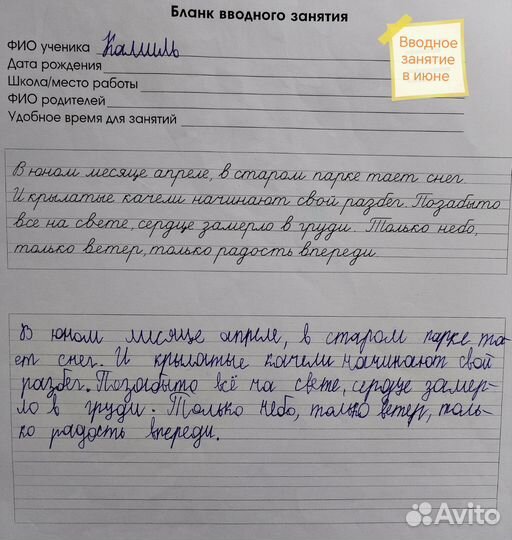 Бланк вводного занятия
ФИО ученика Камиль
Дата рождения
Школа/место работы
ФИО родителей
Удобное время для занятий
Вводное
занятие
в июне
В юном месяце апреле, в старом парке тает снег.
И крылатые качели начинают свой разбег. Позабыто
всё на свете, сердце замерло в груди. Только небо,
только ветер, только радость впереди.
В юном мисяце апреле, в старом парке та-
ет снег. И крылатые качели начинают свой
разбег. Позабыто всё на свете, сердце замер-
ло в груди. Только небо, только ветер, толь-
ко радость впереди.
Avito